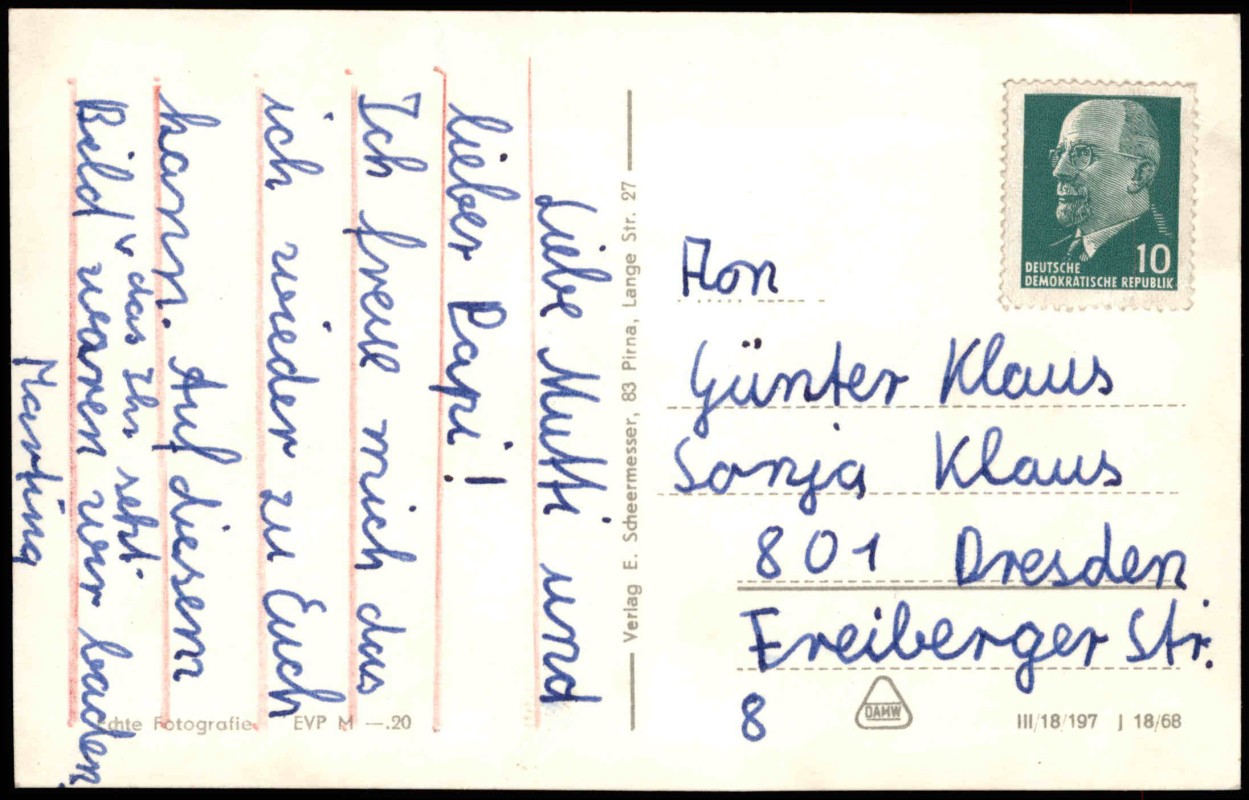 Liebe Mutti und
lieber Papi!
Ich freue mich das
ich wieder zu Euch
kann. Auf diesem
das Ihr seht
Bild waren wir baden
Martina
Echte Fotografie EVP M —.20
Verlag E. Scheermesser, 83 Pirna, Lange Str. 27
DEUTSCHE
DEMOKRATISCHE REPUBLIK
10
Günter Klaus
Sonja Klaus
801 Dresden
Freiberger Str.
8
DAMW
III/18/197 J 18/68